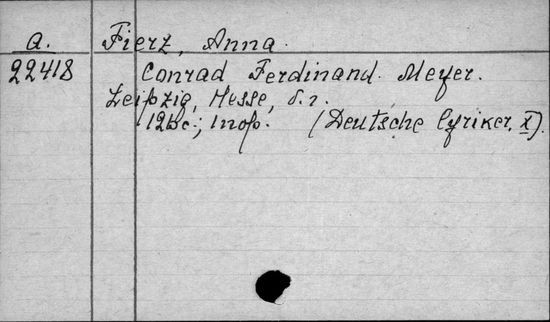 a. Fierz, Anna.
22418 Conrad Ferdinand Meyer.
Leipzig, Hesse, s. r.
(Deutsche Lyriker. X).